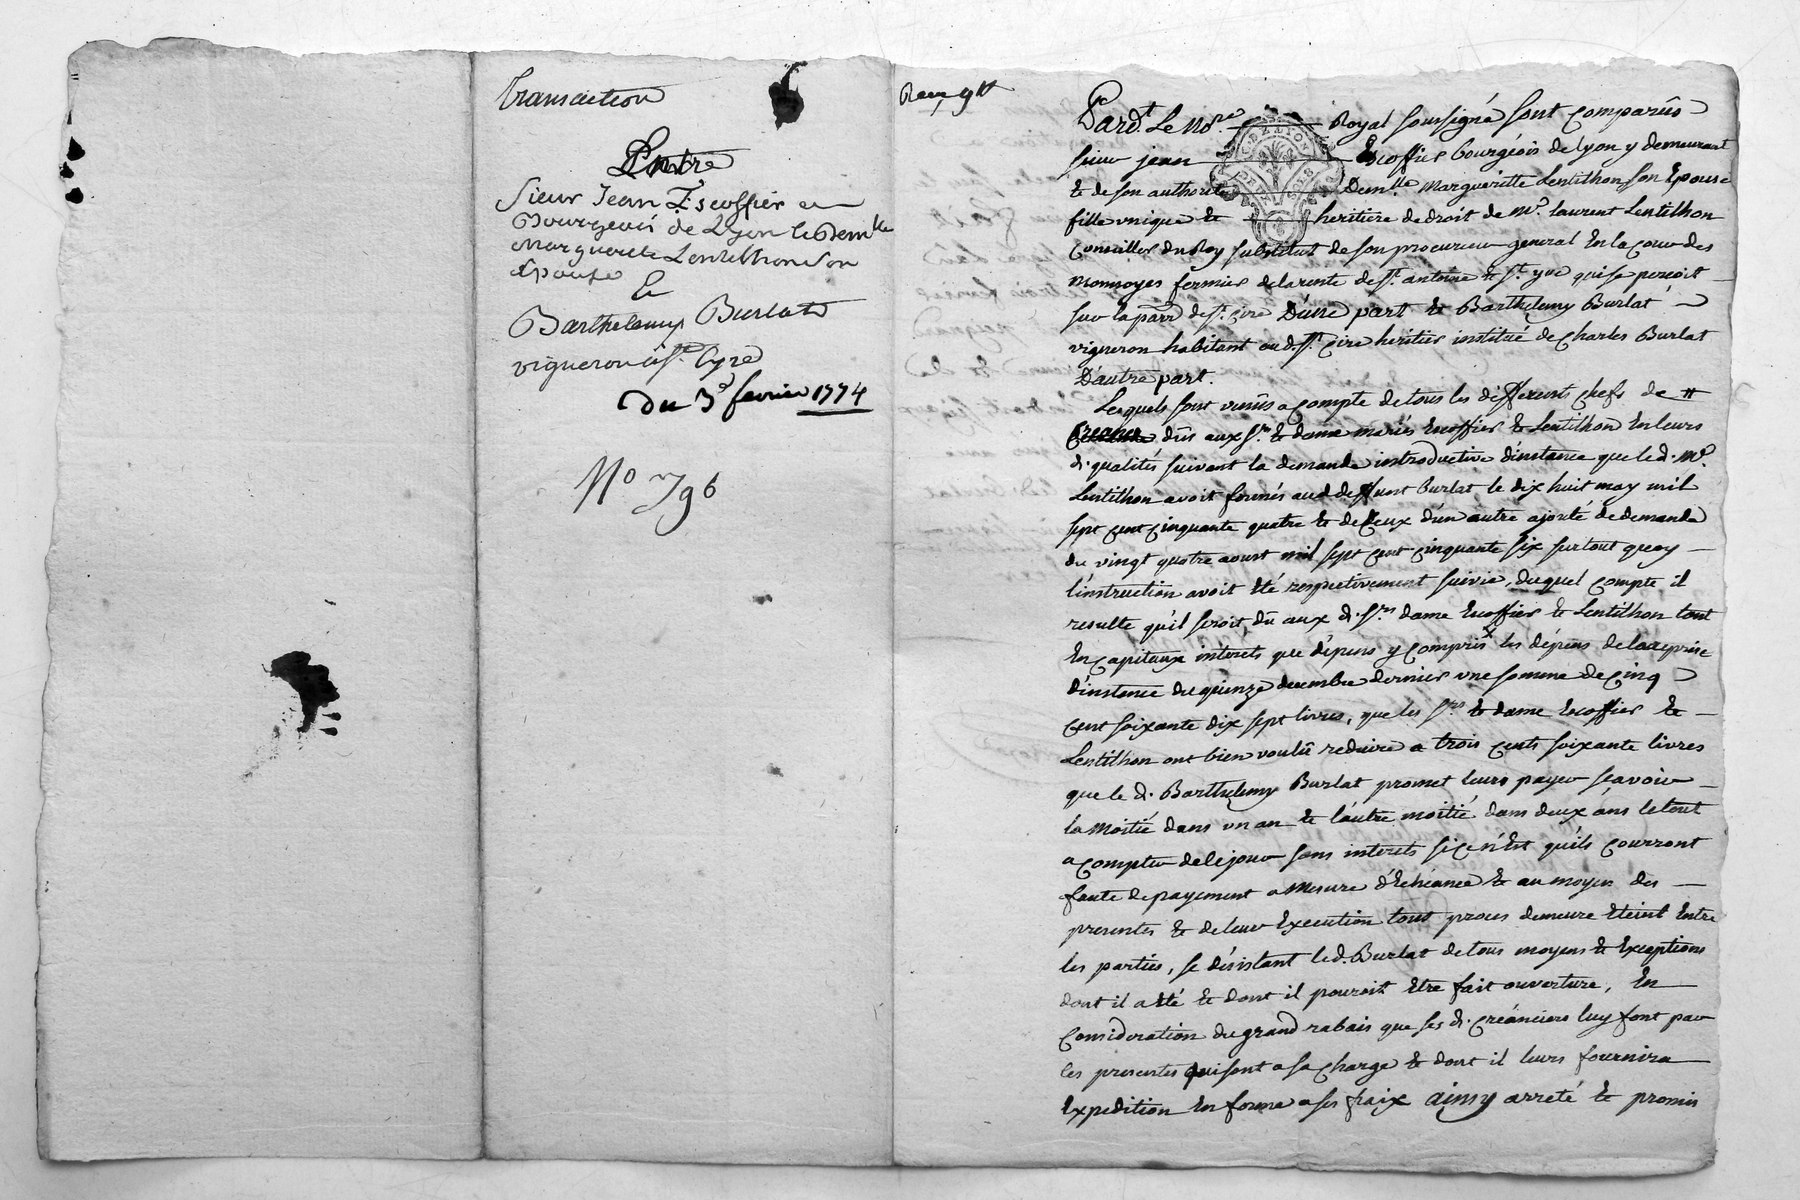 Transaction
Entre
Sieur Jean Escoffier
Bourgeois de Lyon le Demlle
Marguerite Lentilhon son
Epouse
Et
Barthelemy Burlat
vigneron à St. Cyre
du 3e fevrier 1774
No 796
Pard.t Le No.re Royal soussigné sont comparûs
sieur jean Escoffier bourgeois de lyon y demeurant
et de son authorité Demlle Marguerite Lentilhon son Epouse
fille unique et heritiere de droit de Mr. laurent Lentilhon
Conseiller du Roy substitut de son procureur general En la cour des
Monnoyes fermier de la rente de St. antoine et St. yve qui se perçoit
sur la parr. de St. Cire D'une part et Barthelemy Burlat
vigneron habitant aud. St. Cire heritier institué de Charles Burlat
D'autre part.
Lesquels sont venûs a compte de tous les differents chefs de
dûs aux Srs. et dame mariés Escoffier et Lentilhon En leurs
d. qualités suivant la demande introductive d'instance que led. Mr.
Lentilhon avoit formés aud deffunt burlat le dix huit may mil
sept cent cinquante quatre et de ceux d'un autre ajouté de demande
du vingt quatre aoust mil sept cent cinquante six sur tout quoy
l'instruction avoit été respectivement suivie, duquel compte il
resulte qu'il seroit dû aux d. Srs. dame Escoffier et Lentilhon tout
En capitaux interets que dépens y compris les dépens de la reprise
d'instance du quinze decembre dernier une somme de cinq
cent soixante dix sept livres, que les Srs et dame Escoffier et
Lentilhon ont bien voulû reduire a trois cents soixante livres
que le d. Barthelemy Burlat promet leurs payer scavoir
la Moitié dans un an et l'autre moitié dans deux ans le tout
a compter de ce jour sans interets si ce n'Est qu'ils courront
faute de payement a Mesure d'Echéance et au moyen des
presentes et de leur Execution tous proces demeure Eteint Entre
les parties, se désistant led. Burlat de tous moyens et Exceptions
dont il a été et dont il pouroit Etre fait ouverture, En
Consideration du grand rabais que ses d. créanciers luy font par
les presentes qui sont a sa charge et dont il leurs fournira
Expedition En forme a ses fraix ainsy arreté et promis